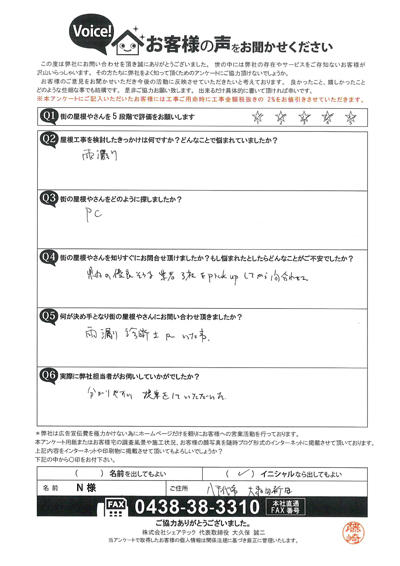 Voice!
お客様の声をお聞かせください
この度は弊社にお問い合わせを頂き誠にありがとうございました。世の中には弊社の存在やサービスをご存知ないお客様が
沢山いらっしゃいます。その方たちに弊社をよく知って頂くためのアンケートにご協力頂けないでしょうか。
お客様のご意見をお聞かせいただき今後の活動に反映させていただきたいと考えております。良かったこと、嬉しかったこと
どのような些細な事でも結構です。是非ご協力お願い致します。出来るだけ具体的に書いて頂ければ幸いです。
※本アンケートにご記入いただいたお客様には工事ご用命時に工事金額税抜きの2%をお値引きさせていただきます。
Q1 街の屋根やさんを5段階で評価をお願いします ☆ ☆ ☆ ☆ ☆
Q2 屋根工事を検討したきっかけは何ですか?どんなことで悩まれていましたか?
雨漏り
Q3 街の屋根やさんをどのように探しましたか?
PC
Q4 街の屋根やさんを知りすぐにお問合せ頂けましたか?もし悩まれたとしたらどんなことがご不安でしたか?
県内の優良そうな業者3社をpick upして
Q5 何が決め手となり街の屋根やさんにお問い合わせ頂きましたか?
雨漏り診断士がいた事。
Q6 実際に弊社担当者がお伺いしていかがでしたか?
分かりやすい提案をしていただいた
※弊社は広告宣伝費を極力かけない為にホームページだけを頼りにお客様への営業活動を行っております。
本アンケート用紙またはお客様宅の調査風景や施工状況、お客様の顔写真を随時ブログ形式のインターネットに掲載させて頂いております。
上記内容をインターネットや印刷物に掲載させて頂いてもよろしいでしょうか?
下記の中から〇印をお付け下さい。
( )名前を出してもよい (✓)イニシャルなら出してもよい
名前 N様 ご住所 八千代市
FAX 0438-38-3310 本社直通 FAX番号
ご協力ありがとうございました。
株式会社シェアテック 代表取締役 大久保 誠二
当アンケートで取得したお客様の個人情報は関係法規に基づき厳正に管理いたします。